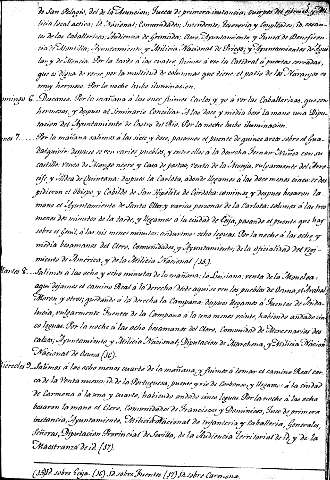 de San Pelagio, del de la Asuncion, Jueces de primera instancia, Cuerpos del ejército y Milicia
local activa; la Nacional; Comunidades; Intendente, Tesorería y Empleados; la Maestranza
de los Caballeritos; Audiencia de Granada; Ayuntamiento y Junta de Beneficencia
de Montilla; Ayuntamiento y Milicia Nacional de Priego; y Ayuntamientos de
y de Atenza. Por la tarde á las cuatro fuimos á ver la Catedral á puertas cerradas,
que es digna de verse por la multitud de columnas que tiene. El patio de los Naranjos es
muy hermoso. Por la noche hubo iluminacion.
Domingo 6. Descanso. Por la mañana á las once fuimos Carlos y yo á ver las Caballerizas, que son
hermosas, y despues al Seminario Conciliar. A las doce y media besó la mano una Diputacion
del Ayuntamiento de Castro del Rio. Por la noche hubo iluminacion.
Lunes 7. Por la mañana salimos á las siete y doce, pasamos el puente de quince arcos sobre el Guadalquivir
despues se ven varios pueblos, y entre ellos á la derecha Fernan Nuñez con su
castillo, venta de Mango negro, y Casa de postas, venta de la Monja, vulgarmente del
y Aldea de Quintana: despues la Carlota, adonde llegamos á las doce menos cinco: se despidieron
el Obispo, y Cabildo de San Hipólito de Córdoba: comimos, y despues besaron la
mano el Ayuntamiento de Santa Ella; y varias personas de la Carlota: salimos á las tres
menos diez minutos de la tarde, y llegamos á la ciudad de Ecija, pasando el puente que hay
sobre el Genil, á las seis menos minutos: anduvimos ocho leguas. Por la noche á las ocho y
media besamanos del Clero, Comunidades, y Ayuntamiento, de la oficialidad del Regimiento
de América, y de la Milicia Nacional (15).
Martes 8. Salimos á las ocho y ocho minutos de la mañana; la Luisiana, venta de la Monclova:
aqui dejamos el camino Real á la derecha: desde aqui se ven los pueblos de Osuna, el Arahal,
Moron, y otros; quedando á la derecha la Campana: despues llegamos á Fuentes de Andalucía,
vulgarmente Fuentes de la Campana á la una menos veinte, habiendo andado cinco
leguas. Por la noche á las ocho besamanos del Clero, Comunidad de Mercenarios descalzos,
Ayuntamiento y Milicia Nacional; Diputacion de Marchena, y Milicia Nacional
de Osuna (16).
Miercoles 9. Salimos á las ocho menos cuarto de la mañana, y fuimos á tomar el camino Real cerca
de la Venta nueva: id. de la Portuguesa, puente y rio de Corbones, y llegamos á la ciudad
de Carmona á la una y cuarto, habiendo andado cinco leguas. Por la noche á las ocho
besaron la mano el Clero, Comunidades de Franciscos y Dominicos, Juez de primera
instancia, Ayuntamiento, Milicia Nacional de Infantería y Caballería, Generales,
Señoras, Diputacion Provincial de Sevilla, de la Audiencia Territorial de id. y de la
Maestranza de id. (17).
(15) Id. sobre Ecija. (16) Id. sobre Fuentes. (17) Id. sobre Carmona.